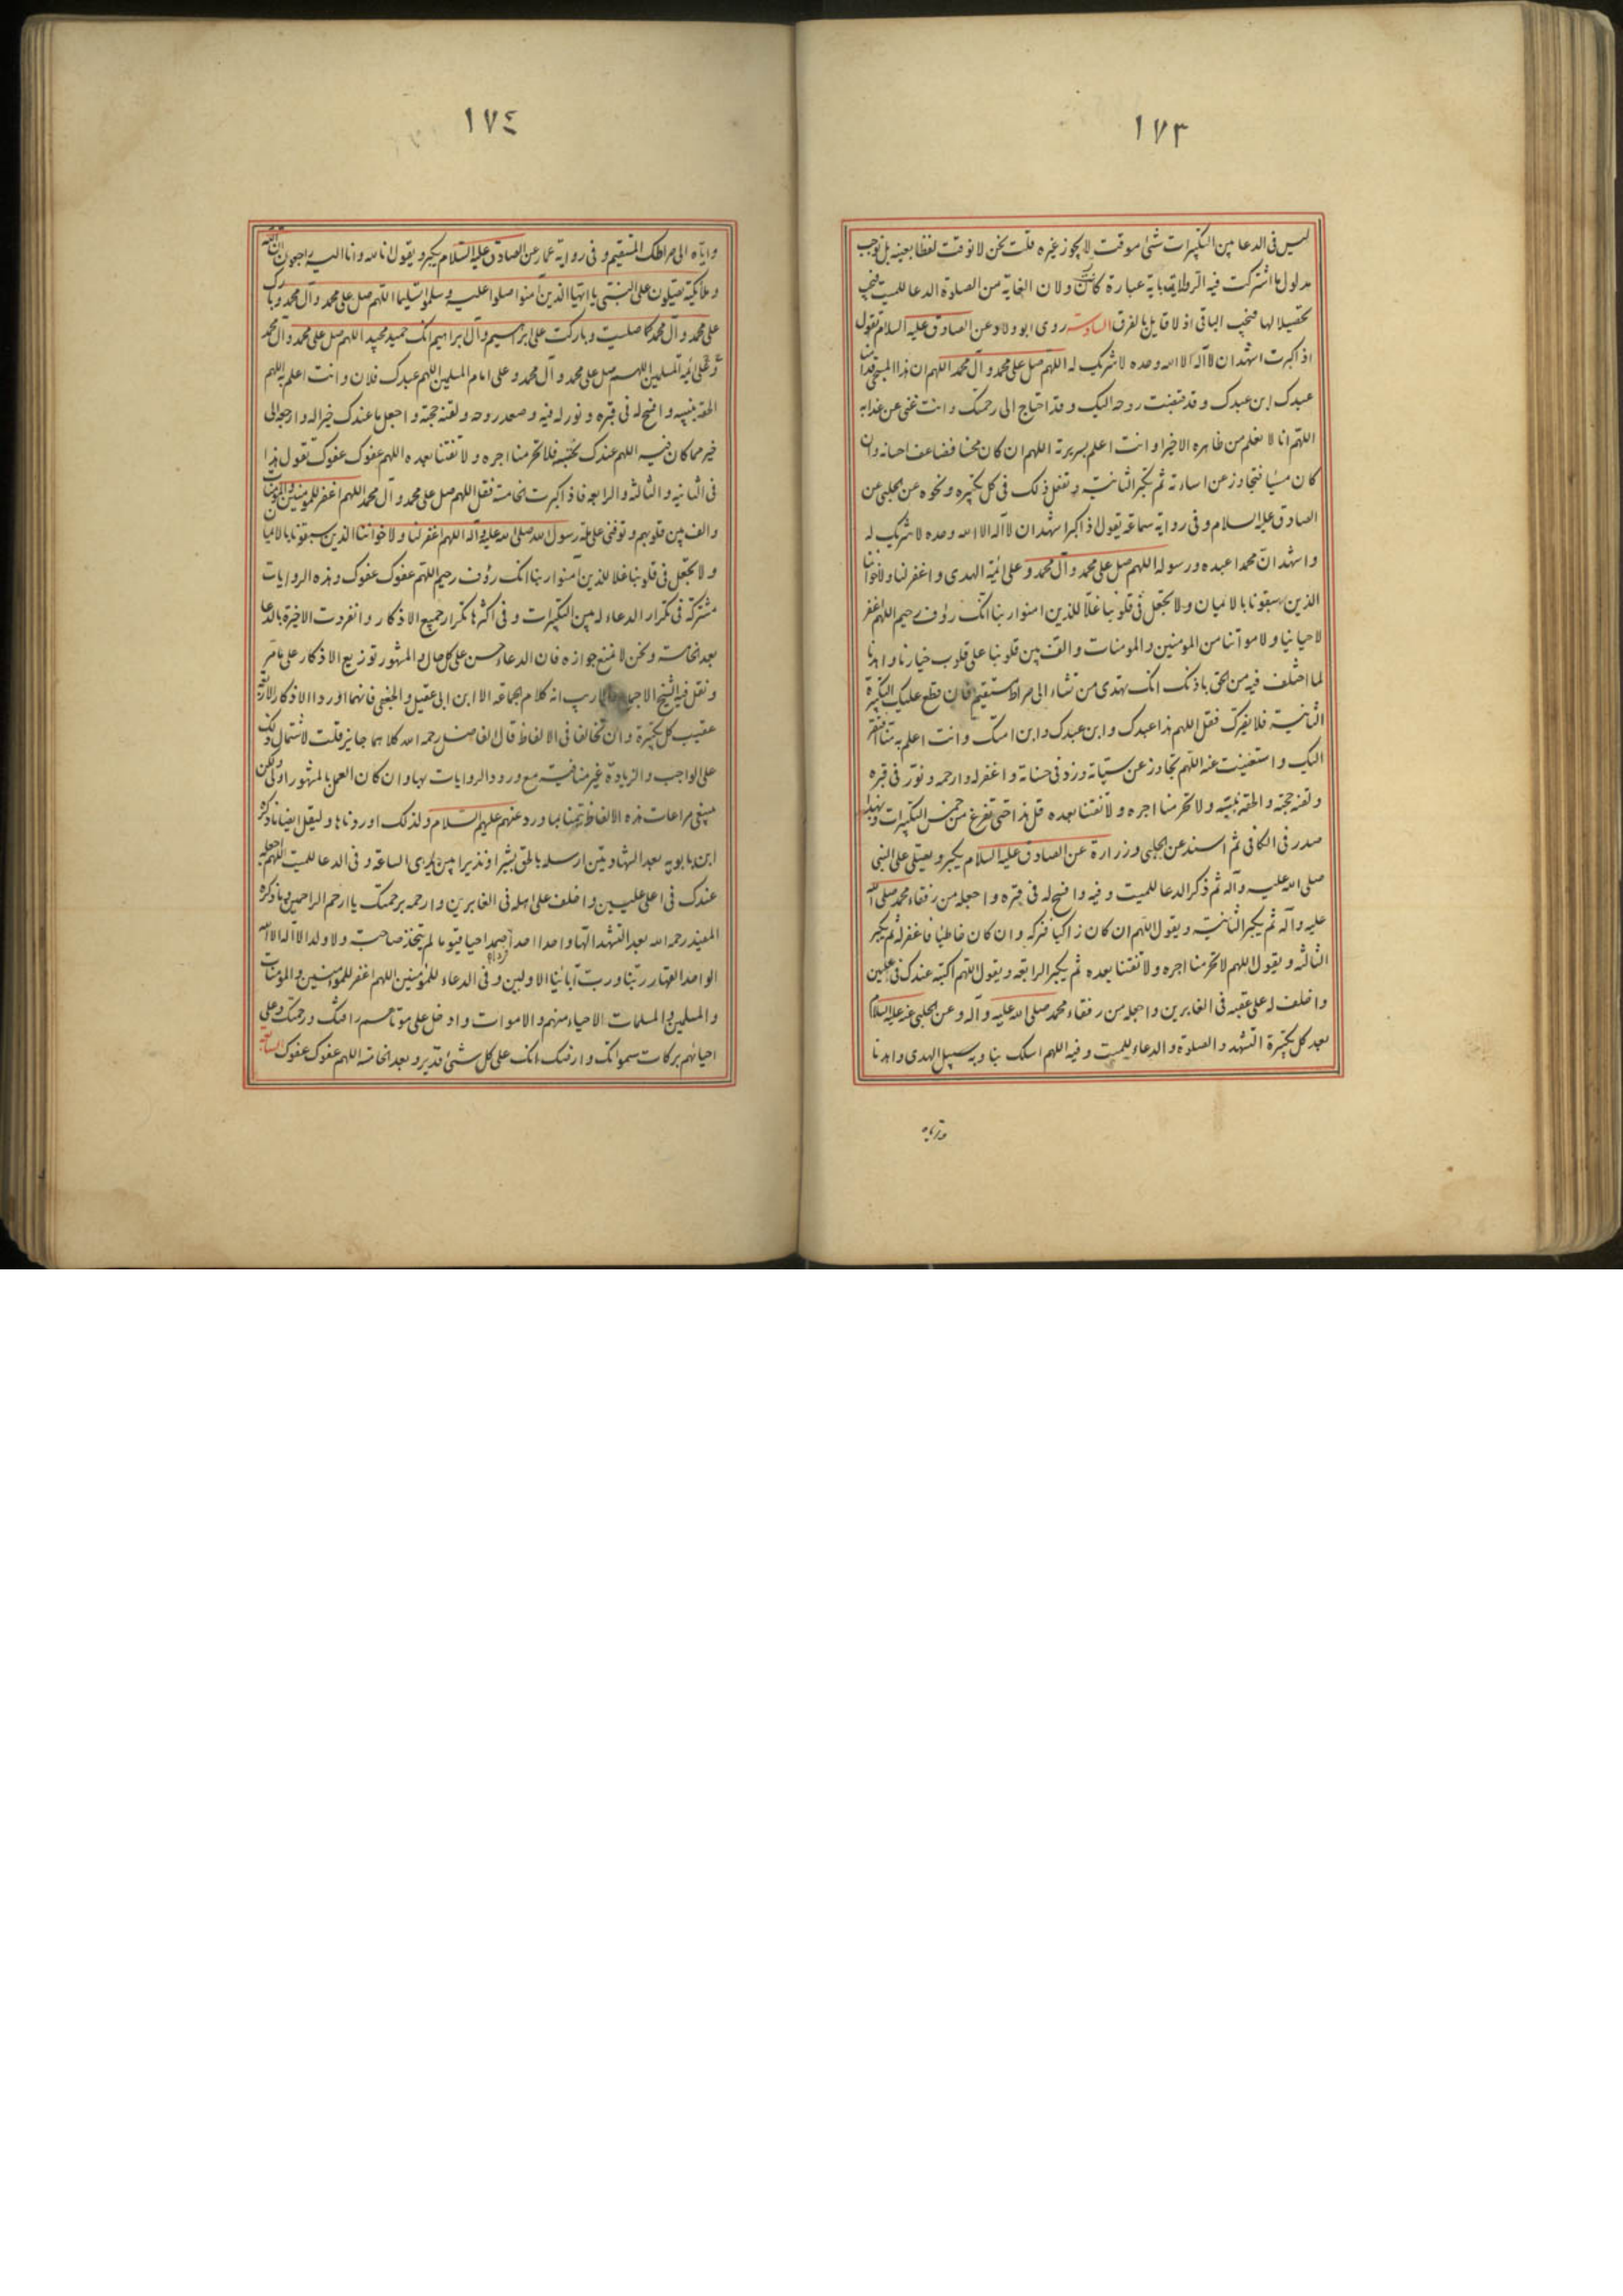 ١٧٣
ليس فى الدعا بين التكبيرات شئ موقت لا يجوز غيره قلت نحن لا نوقت لفظا بعينه بل نوجب
مدلول ما اشتركت فيه الروايات باية عبارة كانت ولان الغاية من الصلوة الدعا للميت فيجب
تحصيلا لها فيجب الباقى اذ لا قايل بالفرق السادسة روى ابو ولاد عن الصادق عليه السلام تقول
اذا كبرت اشهد ان لا اله الا الله وحده لا شريك له اللهم صل على محمد وآل محمد اللهم ان هذا المسجى قدامنا
عبدك ابن عبدك وقد قبضت روحه اليك وقد احتاج الى رحمتك وانت غنى عن عذابه
اللهم انا لا نعلم من ظاهره الا خيرا وانت اعلم بسريرته اللهم ان كان محسنا فضاعف احسانه وان
كان مسيئا فتجاوز عن اساءته ثم تكبر الثانية وتفعل ذلك فى كل تكبيره ونحوه عن الحلبى عن
الصادق عليه السلام وفى رواية سماعة يقول اذا كبر اشهد ان لا اله الا الله وحده لا شريك له
واشهد ان محمدا عبده ورسوله اللهم صل على محمد وآل محمد وعلى ائمة الهدى واغفر لنا ولاخواننا
الذين سبقونا بالايمان ولا تجعل فى قلوبنا غلا للذين امنوا ربنا انك رؤف رحيم اللهم اغفر
لاحيائنا ولامواتنا من المومنين والمومنات والف بين قلوبنا على قلوب خيارنا واهدنا
لما اختلف فيه من الحق باذنك انك تهدى من تشاء الى صراط مستقيم فان قطع عليك التكبيرة
الثانية فلا يضرك فقل اللهم هذا عبدك وابن عبدك وابن امتك وانت اعلم به منا افتقر
اليك واستغنيت عنه اللهم تجاوز عن سيئاته وزد فى حسناته واغفر له وارحمه ونور فى قبره
ولقنه حجته والحقه بنبيه ولا تحرمنا اجره ولا تفتنا بعده قل هذا حتى تفرغ من خمس التكبيرات وبهذا
صدر فى الكافى ثم اسند عن الحلبى وزرارة عن الصادق عليه السلام يكبر ويصلى على النبى
صلى الله عليه وآله ثم ذكر الدعا للميت وفيه وافسح له فى قبره واجعله من رفقاء محمد صلى الله
عليه وآله ثم يكبر الثانية ويقول اللهم ان كان زاكيا فزكه وان كان خاطئا فاغفر له ثم يكبر
الثالثه ويقول اللهم لا تحرمنا اجره ولا تفتنا بعده ثم يكبر الرابعه ويقول اللهم اكتبه عندك فى عليين
واخلف له على عقبه فى الغابرين واجعله من رفقاء محمد صلى الله عليه وآله وعن الحلبى عنه عليه السلام
بعد كل تكبيرة التشهد والصلوة والدعاء للميت وفيه اللهم اسلك بنا وبه سبيل الهدى واهدنا
١٧٤
واياه الى صراطك المستقيم وفى رواية عمار عن الصادق عليه السلام يكبر ويقول انا لله وانا اليه راجعون ان الله
وملائكته يصلون على النبى يا ايها الذين آمنوا صلوا عليه وسلموا تسليما اللهم صل على محمد وآل محمد وبارك
على محمد وآل محمد كما صليت وباركت على ابراهيم وآل ابراهيم انك حميد مجيد اللهم صل على محمد وآل محمد
وعلى ائمة المسلمين اللهم صل على محمد وآل محمد وعلى امام المسلمين اللهم عبدك فلان وانت اعلم به اللهم
الحقه بنبيه وافسح له فى قبره ونور له فيه وصعد روحه ولقنه حجته واجعل ما عندك خيرا له وارجعه الى
خير مما كان فيه اللهم عندك نحتسبه فلا تحرمنا اجره ولا تفتنا بعده اللهم عفوك عفوك تقول هذا
فى الثانيه والثالثه والرابعه فاذا كبرت الخامسة فقل اللهم صل على محمد وآل محمد اللهم اغفر للمومنين والمومنات
والف بين قلوبهم وتوفنى على ملة رسول الله صلى الله عليه وآله اللهم اغفر لنا ولاخواننا الذين سبقونا بالايمان
ولا تجعل فى قلوبنا غلا للذين آمنوا ربنا انك رؤف رحيم اللهم عفوك عفوك وهذه الروايات
مشتركة فى تكرار الدعاء له بين التكبيرات وفى اكثرها تكرار جميع الاذكار وانفردت الاخيرة بالدعا
بعد الخامسة ونحن لا نمنع جوازه فان الدعاء حسن على كل حال والمشهور توزيع الاذكار على ما مر
ونقل فيه الشيخ الاجماع ولا ريب انه كلام الجماعة الا ابن ابى عقيل والجعفى فانهما اوردا الاذكار الاربعة
عقيب كل تكبيرة وان تخالفا فى الالفاظ قال الفاضل رحمه الله كلاهما جايز قلت لاشتمال ذلك
على الواجب والزيادة غير منافية مع ورود الروايات بها وان كان العمل بالمشهور اولى ولكن
ينبغى مراعات هذه الالفاظ تيمنا بما ورد عنهم عليهم السلام ولذلك اوردناها وليقل ايضا ما ذكره
ابن بابويه بعد الشهادتين ارسله بالحق بشيرا ونذيرا بين يدى الساعة وفى الدعا للميت اللهم اجعله
عندك فى اعلى عليين واخلف على اهله فى الغابرين وارحمه برحمتك يا ارحم الراحمين وما ذكره
المفيد رحمه الله بعد التشهد الها واحدا احدا فردا صمدا حيا قيوما لم يتخذ صاحبة ولا ولدا لا اله الا الله
الواحد القهار ربنا ورب آبائنا الاولين وفى الدعاء للمؤمنين اللهم اغفر للمومنين والمومنات
والمسلمين والمسلمات الاحياء منهم والاموات وادخل على موتاهم رافتك ورحمتك وعلى
احيائهم بركات سمواتك وارضك انك على كل شئ قدير وبعد الخامسة اللهم عفوك عفوك السابعة